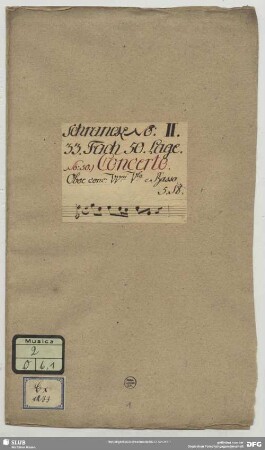 Schranck No: II.
33. Fach 50. Lage.
Concerto.
Oboe conc. VVni Vla e Basso
5. St.
Musica
2
O 6,1
Cx
1243
SLUB
DFG